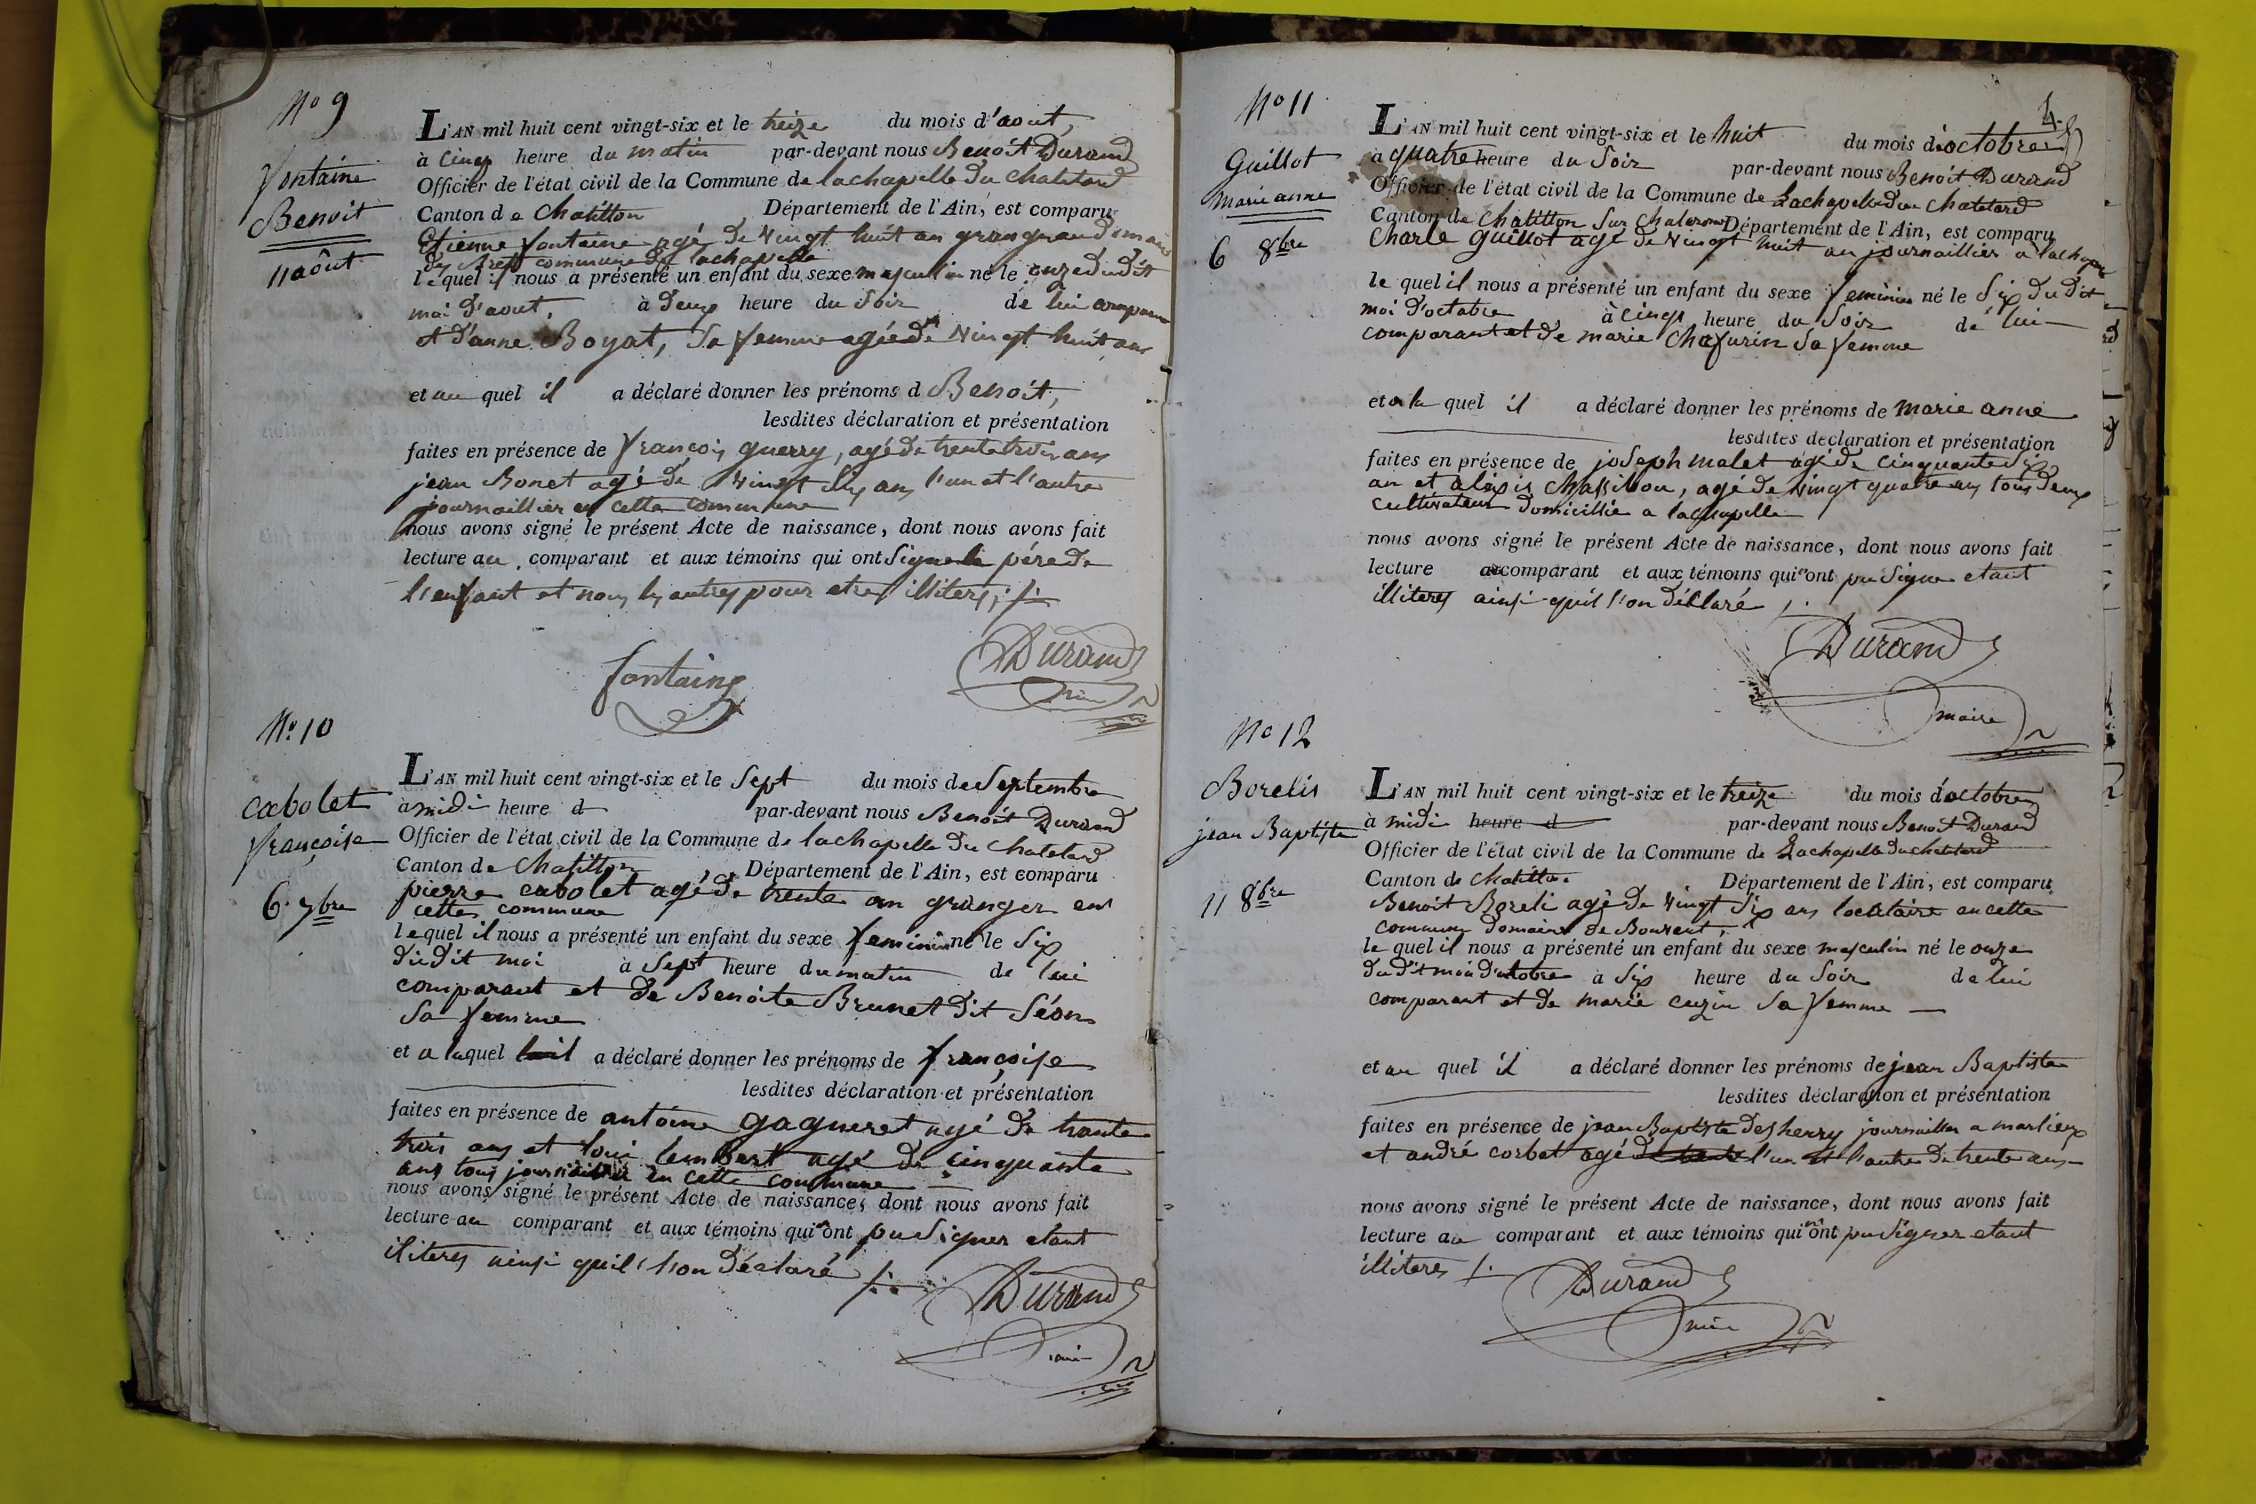 N° 9
fontaine
Benoit
11 août
L'AN mil huit cent vingt-six et le treize du mois d'aout,
à cinq heure du matin par-devant nous Benoit Durand
Officier de l'état civil de la Commune de lachapelle du chatelard
Canton de Chatillon Département de l'Ain, est comparu
Etienne fontaine agé de vingt huit an granger au domaine
commune de lachapelle
lequel il nous a présenté un enfant du sexe masculin né le onze dudit
moi d'aout, à deux heure du soir de lui comparant
et d'anne Boyat, sa femme agée de vingt huit ans
et au quel il a déclaré donner les prénoms d Benoit,
lesdites déclaration et présentation
faites en présence de françois guerry, agé de trente trois ans
jean Bonet agé de vingt six ans l'un et l'autre
journaillier en cette commune
nous avons signé le présent Acte de naissance, dont nous avons fait
lecture au comparant et aux témoins qui ont signe le père de
l'enfant et nous les autres pour etres illiteres ./.
fontaine
Durand
maire
N° 10
cabolet
françoise
6. 7bre
L'AN mil huit cent vingt-six et le sept du mois de septembre
à midi heure d par-devant nous Benoit Durand
Officier de l'état civil de la Commune de lachapelle du chatelard
Canton de Chatillon Département de l'Ain, est comparu
pierre cabolet agé de trente an granger en
cette commune
lequel il nous a présenté un enfant du sexe feminin né le six
dudit moi à sept heure du matin de lui
comparant et de Benoite Brunet dit Séon
sa femme
et a laquel il a déclaré donner les prénoms de françoise
lesdites déclaration et présentation
faites en présence de antoine gagneret agé de trante
trois ans et loui lembert agé de cinquante
ans tous journaillier en cette commune
nous avons signé le présent Acte de naissance, dont nous avons fait
lecture au comparant et aux témoins qui n'ont pu signer etant
iliteres ainsi quil l'on déclaré ./.
Durand
maire
4
N° 11
Guillot
marie anne
6 8bre
L'AN mil huit cent vingt-six et le huit du mois d'octobre
a quatre heure du soir par-devant nous Benoit Durand
Officier de l'état civil de la Commune de Lachapelle du Chatelard
Canton de Chatillon sur Chalaronne Département de l'Ain, est comparu
Charle Guillot agé de vingt huit an journaillier a lachapelle
le quel il nous a présenté un enfant du sexe feminin né le six du dit
moi d'octobre à cinq heure du soir de lui
comparant et de marie Chafurin sa femme
et a la quel il a déclaré donner les prénoms de marie anne
lesdites déclaration et présentation
faites en présence de joseph malet agé de cinquante six
an et alexis Chassibou, agé de vingt quatre ans tous deux
cultivateur domicillié a lachapelle
nous avons signé le présent Acte de naissance, dont nous avons fait
lecture au comparant et aux témoins qui n'ont pu signe etant
illiteres ainsi quil l'on déclaré ./.
Durand
maire
N° 12
Borelis
jean Baptiste
11 8bre
L'AN mil huit cent vingt-six et le treize du mois d'octobre
à midi heure d par-devant nous Benoit Durand
Officier de l'état civil de la Commune de Lachapelle du chatelard
Canton de Chatillon Département de l'Ain, est comparu
Benoit Boreli agé de vingt six ans locataire en cette
commune domaine de Bouvent,
le quel il nous a présenté un enfant du sexe masculin né le onze
du dit moi d'octobre à six heure du soir de lui
comparant et de marie cuzin sa femme
et au quel il a déclaré donner les prénoms de jean Baptiste
lesdites déclaration et présentation
faites en présence de jean Baptiste desherry journaillier a marlieux
et andré corbet agé de trente l'un et l'autre de trente ans
nous avons signé le présent Acte de naissance, dont nous avons fait
lecture au comparant et aux témoins qui n'ont pu signer etant
illiteres ./.
Durand
maire